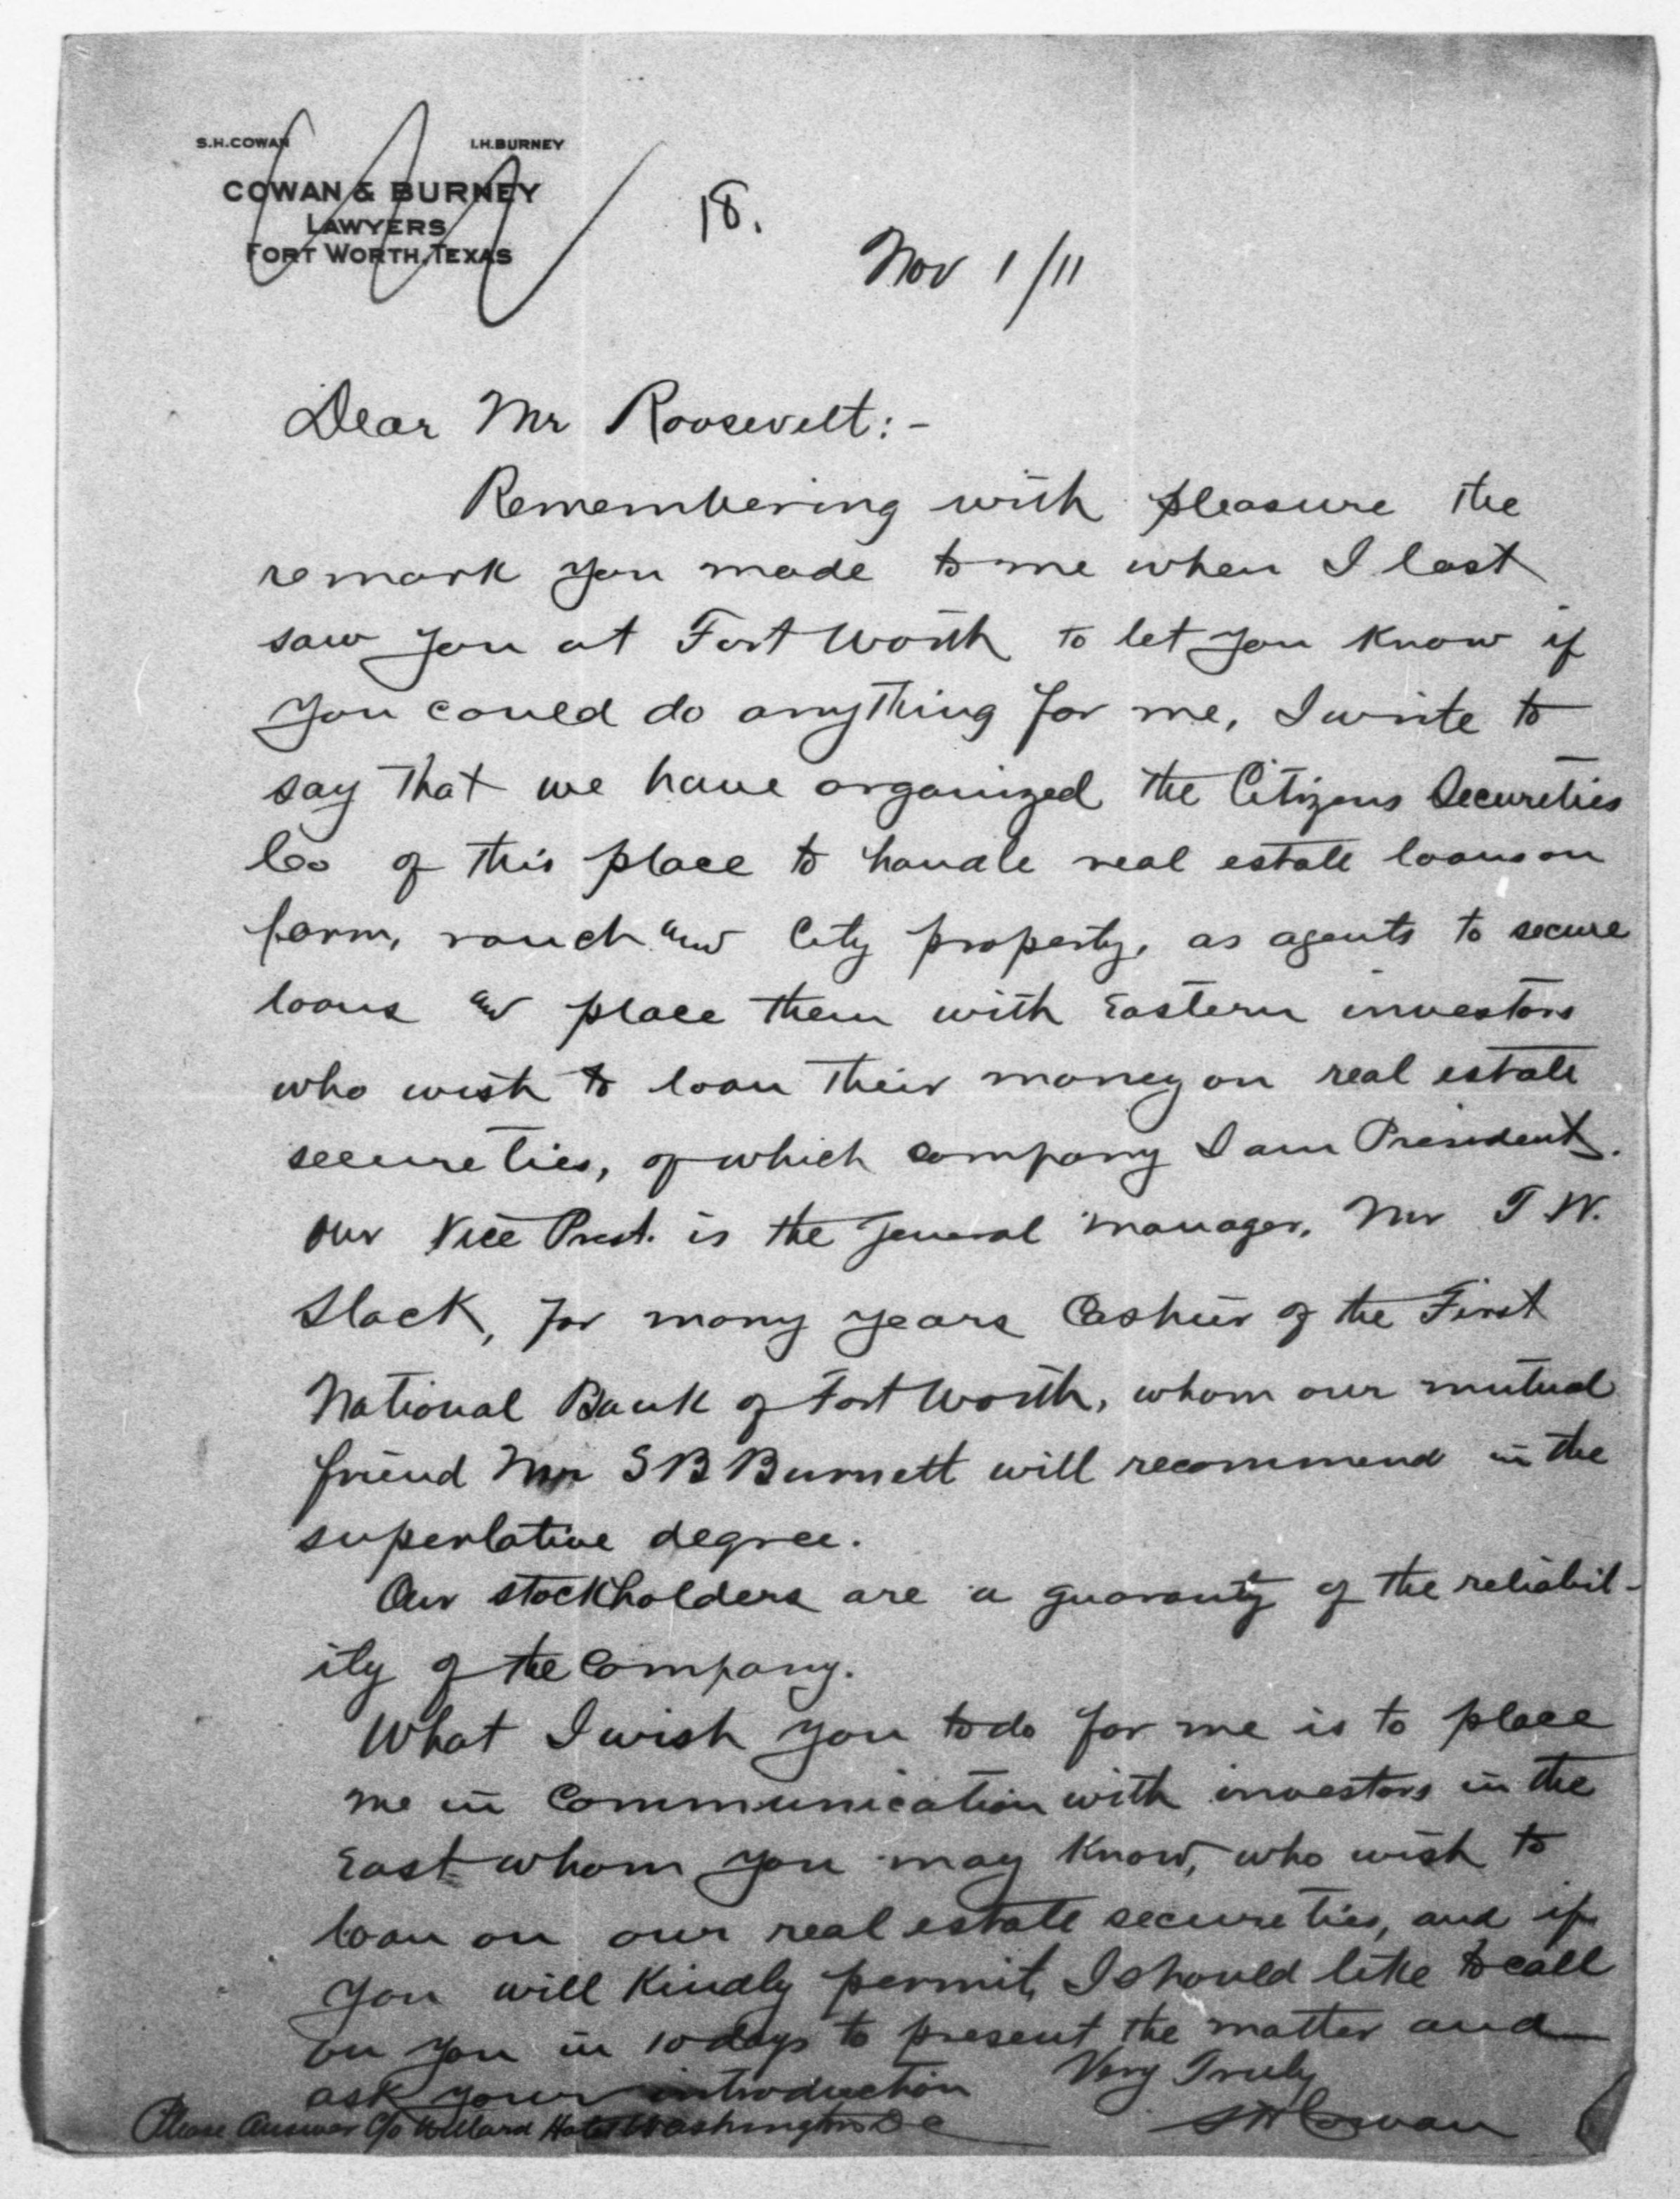 S.H.COWAN I.H.BURNEY
COWAN & BURNEY
LAWYERS
FORT WORTH, TEXAS
18.
Nov 1/11
Dear Mr Roosevelt:-
Remembering with pleasure the
remark you made to me when I last
saw you at Fort Worth to let you know if
you could do anything for me, I write to
say that we have organized the Citizens Securities
Co of this place to handle real estate loans on
farm, ranch and City property, as agents to secure
loans and place them with Eastern investors
who wish to loan their money on real estate
secureties, of which company I am President.
Our Vice Prest. is the general manager, Mr T.W.
Slack, for many years Cashier of the First
National Bank of Fort Worth, whom our mutual
friend Mr S B Burnett will recommend in the
superlative degree.
Our stockholders are a guaranty of the reliabil-
ity of the Company.
What I wish you to do for me is to place
me in Communication with investors in the
East whom you may know, who wish to
loan on our real estate secureties, and if
you will kindly permit, I should like to call
on you in 10 days to present the matter and
ask your introduction Very Truly
Please Answer C/o Willard Hotel Washington D C S H Cowan